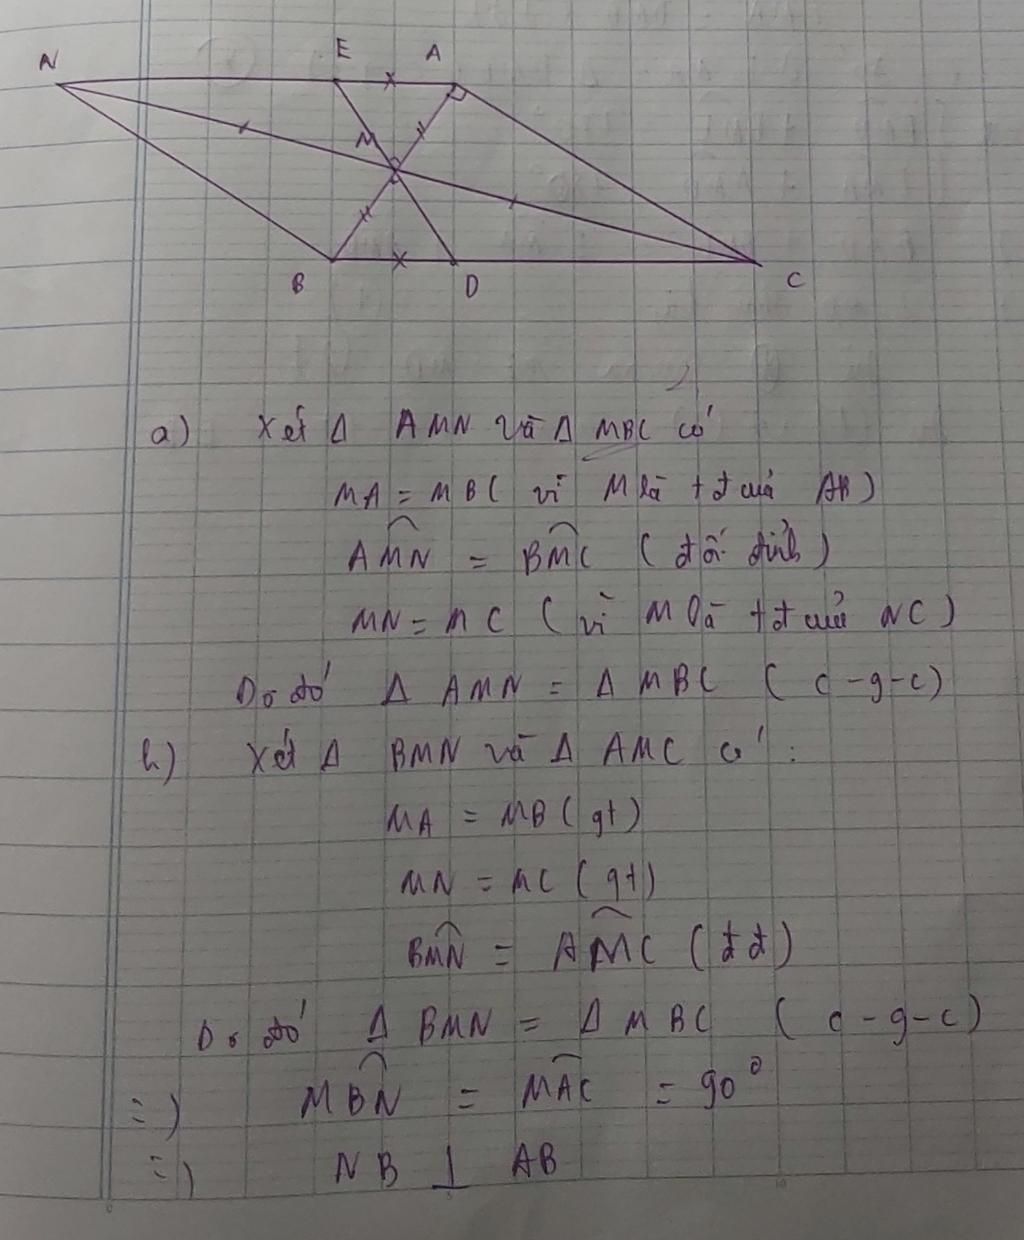 N
E
A
M
B
D
C
a) Xét Δ AMN và Δ MBC có
MA = MB ( vì M là tđ của AB )
AMN = BMC ( đối đỉnh )
MN = MC ( vì M là tđ của NC )
Do đó Δ AMN = Δ MBC ( c-g-c )
b) Xét Δ BMN và Δ AMC có :
MA = MB ( gt )
MN = MC ( gt )
BMN = AMC ( đđ )
Do đó Δ BMN = Δ MBC ( c-g-c )
=) MBN = MAC = 90°
=) NB ⊥ AB